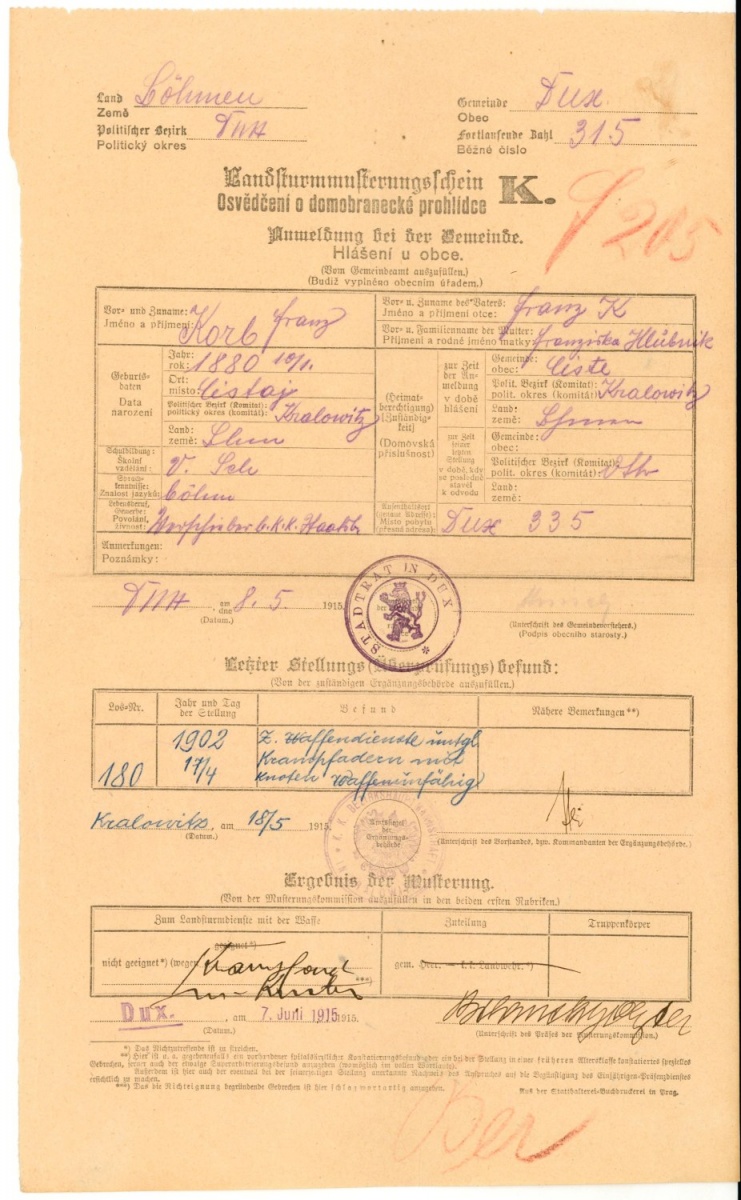 Land Böhmen
Země
Politischer Bezirk Dux
Politický okres
Gemeinde Dux
Obec
Fortlaufende Zahl 315
Běžné číslo
Landsturmmusterungsschein K.
Osvědčení o domobranecké prohlídce
205
Anmeldung bei der Gemeinde.
Hlášení u obce.
(Vom Gemeindeamt auszufüllen.)
(Budiž vyplněno obecním úřadem.)
Vor- und Zuname:
Jméno a příjmení: Korb Franz
Vor- u. Zuname des Vaters:
Jméno a příjmení otce: Franz K
Vor- u. Familienname der Mutter:
Příjmení a rodné jméno matky: Franziska Hlubnik
Geburtsdaten
Data narození
Jahr:
rok: 1880 10/1.
Ort:
místo: Cistaj
Politischer Bezirk (Komitat):
politický okres (komitát): Kralowitz
Land:
země:
Schulbildung:
Školní vzdělání: V. Sch
Sprachkenntnisse:
Znalost jazyků: böhm
Lebensberuf, Gewerbe:
Povolání, živnost: Verschieber b. k. k. Staatsb
(Heimatberechtigung) (Zuständigkeit)
(Domovská příslušnost)
zur Zeit der Anmeldung
v době hlášení
Gemeinde:
obec: Ciste
Polit. Bezirk (Komitat):
polit. okres (komitát): Kralowitz
Land:
země:
zur Zeit seiner letzten Stellung
v době, kdy se posledně stavěl k odvodu
Gemeinde:
obec:
Politischer Bezirk (Komitat):
polit. okres (komitát):
Land:
země:
Aufenthaltsort (genaue Adresse):
Místo pobytu (přesná adresa): Dux 335
Anmerkungen:
Poznámky:
Dux am
dne 8. 5. 1915.
(Datum.)
STADTRAT IN DUX
(Unterschrift des Gemeindevorstehers.)
(Podpis obecního starosty.)
Letzter Stellungs(Überprüfungs)befund:
(Von der zuständigen Ergänzungsbehörde auszufüllen.)
Los-Nr.
Jahr und Tag der Stellung
Befund
Nähere Bemerkungen**)
180
1902
17/4
Z. Waffendienste untgl
Krampfadern mit
Knoten waffenunfähig
Kralowitz, am 18/5 1915.
(Datum.)
K. K. BEZIRKSHAUPTMANNSCHAFT
Amtssiegel der Ergänzungsbehörde
(Unterschrift des Vorstandes, bzw. Kommandanten der Ergänzungsbehörde.)
Ergebnis der Musterung.
(Von der Musterungskommission auszufüllen in den beiden ersten Rubriken.)
Zum Landsturmdienste mit der Waffe
Zuteilung
Truppenkörper
geeignet*)
nicht geeignet*) (wegen
***)
gem. Heer. — k. k. Landwehr.*)
Dux. , am 7. Juni 1915 1915.
(Datum.)
(Unterschrift des Präses der Musterungskommission.)
*) Das Nichtzutreffende ist zu streichen.
***) Das die Nichteignung begründende Gebrechen ist hier schlagwortartig anzugeben.
Aus der Statthalterei-Buchdruckerei in Prag.